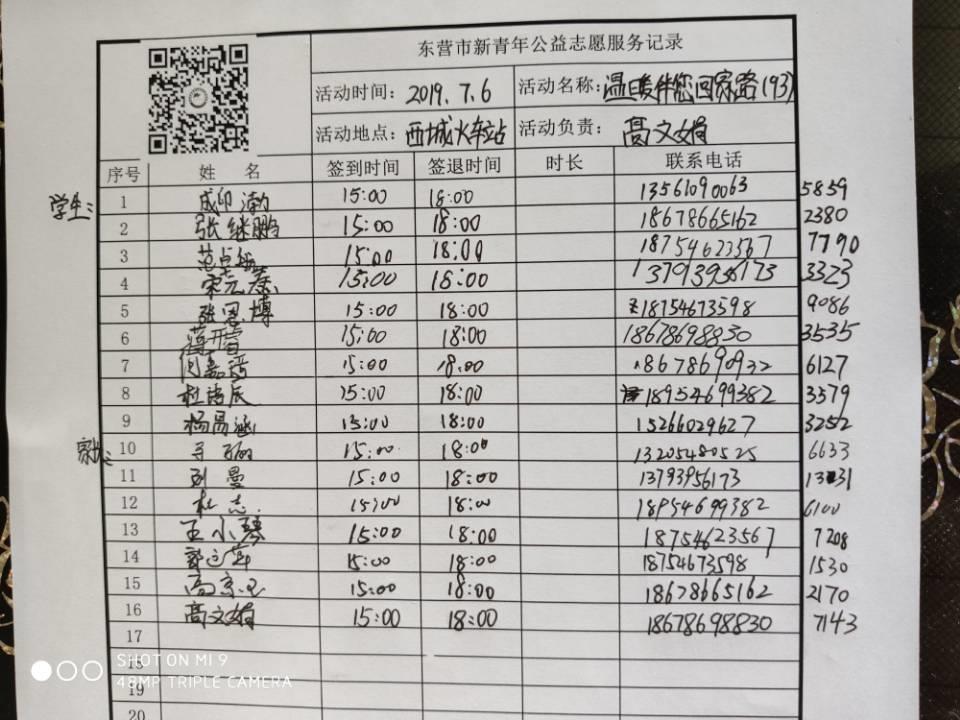 东营市新青年公益志愿服务记录
活动时间: 2019.7.6 活动名称: 温暖伴您回家路(93)
活动地点: 西城火车站 活动负责: 高文娟
序号 姓 名 签到时间 签退时间 时长 联系电话
学生: 1 成卯瀚 15:00 18:00 13561090063 5859
2 张继鹏 15:00 18:00 18678665162 2380
3 15:00 18:00 18754623567 7790
4 宋元泰 15:00 18:00 13793956173 3323
5 张恩博 15:00 18:00 18754673598 9086
6 蒋开睿 15:00 18:00 18678698830 3535
7 15:00 18:00 18678690932 6127
8 杜诺辰 15:00 18:00 18954699382 3579
9 杨昌涵 15:00 18:00 15266029627 3252
家长: 10 15:00 18:00 13205480525 6633
11 刘曼 15:00 18:00 13793956173
12 杜志 15:00 18:00 18954699382 6100
13 王小琴 15:00 18:00 18754623567 7208
14 郭运萍 15:00 18:00 18754673598 1530
15 15:00 18:00 18678665162 2170
16 高文娟 15:00 18:00 18678698830 7143
17
18
19
20
SHOT ON MI 9
48MP TRIPLE CAMERA